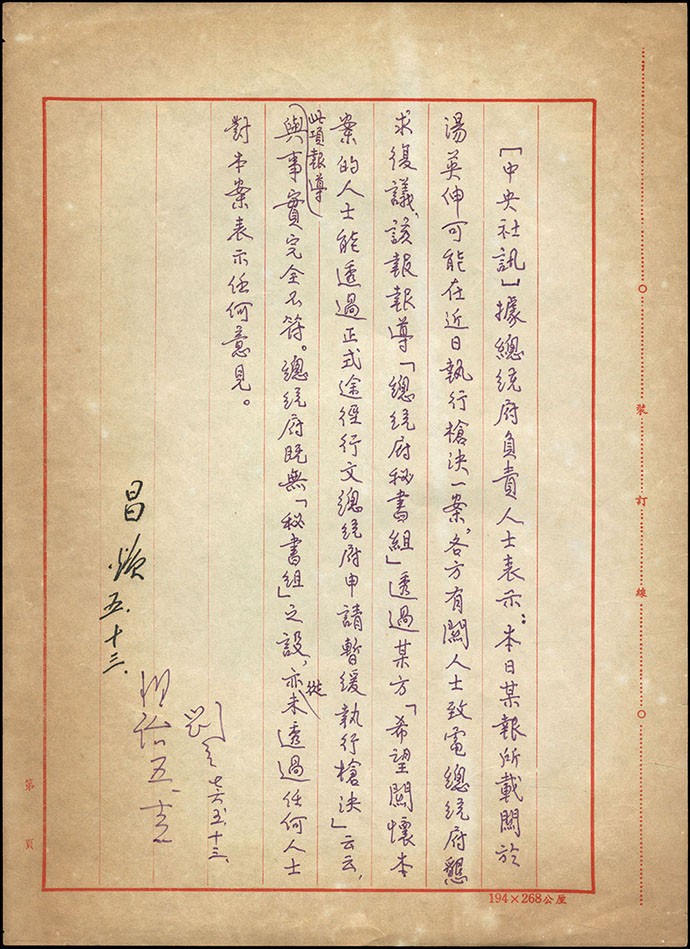 「中央社訊」據總統府負責人士表示:本日某報所載關於
湯英伸可能在近日執行槍決一案,各方有關人士致電總統府懇
求復議,該報報導「總統府秘書組」透過某方「希望關懷本
案的人士能透過正式途徑行文總統府申請暫緩執行槍決」云云,
此項報導
與事實完全不符。總統府既無「秘書組」之設,亦未透過任何人士
從
對本案表示任何意見。
昌煥五、十三、
劉 七六五十三、
五、十三
裝 訂 線
第 頁
194×268公厘